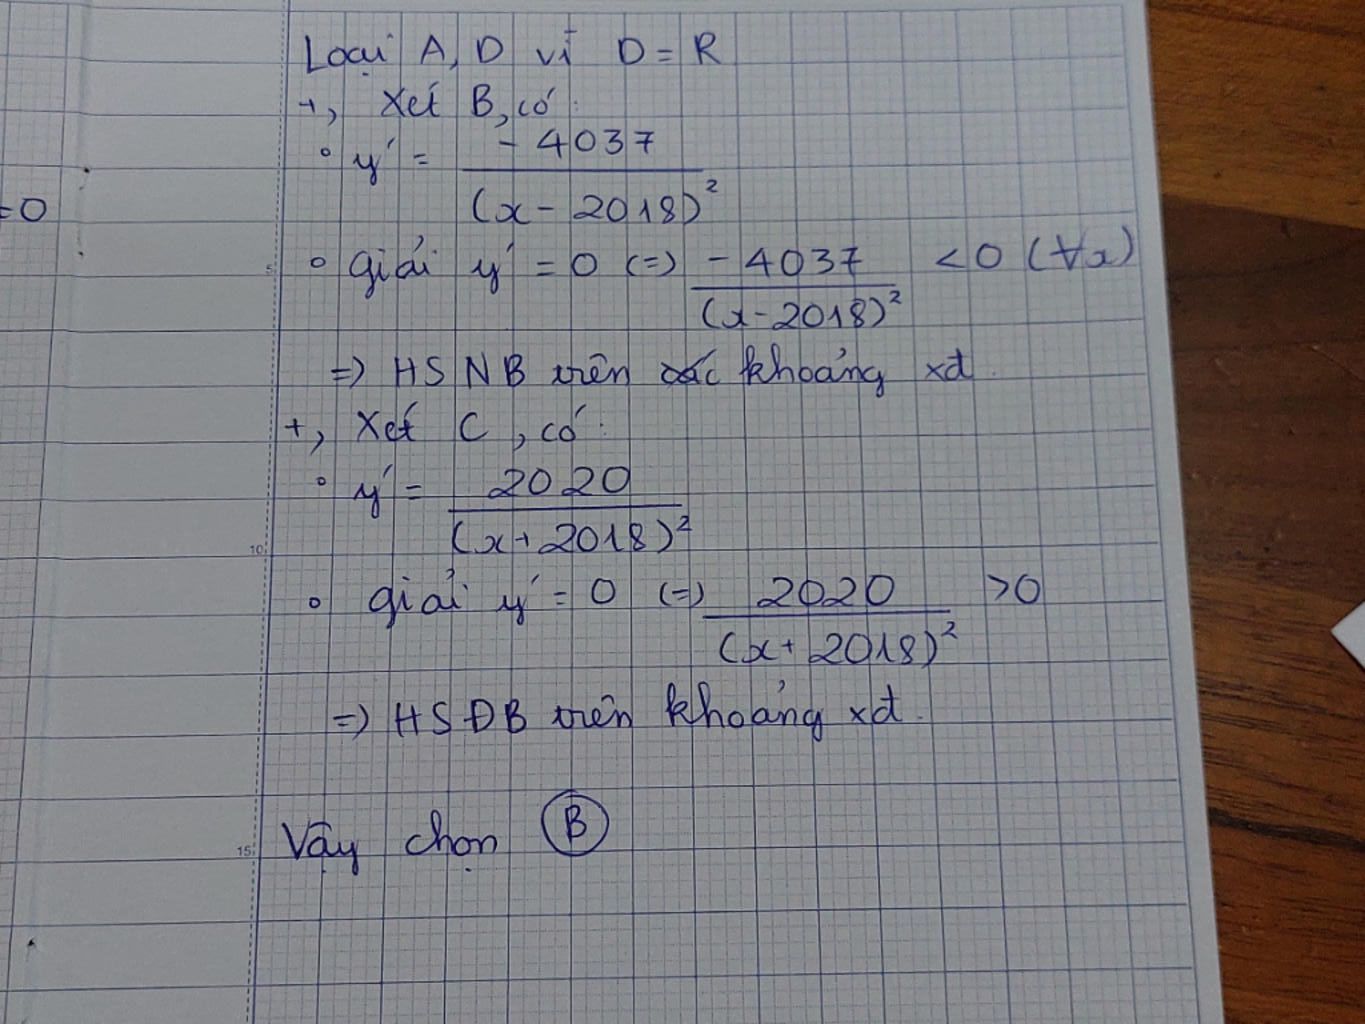 =0
Loại A, D vì D = R
+, Xét B, có:
° y' = -4037/(x - 2018)²
° giải y' = 0 (=) -4037/(x - 2018)² < 0 (∀x)
=) HS NB trên các khoảng xđ.
+, Xét C, có:
° y' = 2020/(x + 2018)²
° giải y' = 0 (=) 2020/(x + 2018)² > 0
=) HS ĐB trên khoảng xđ.
Vậy chọn B
5
10
15